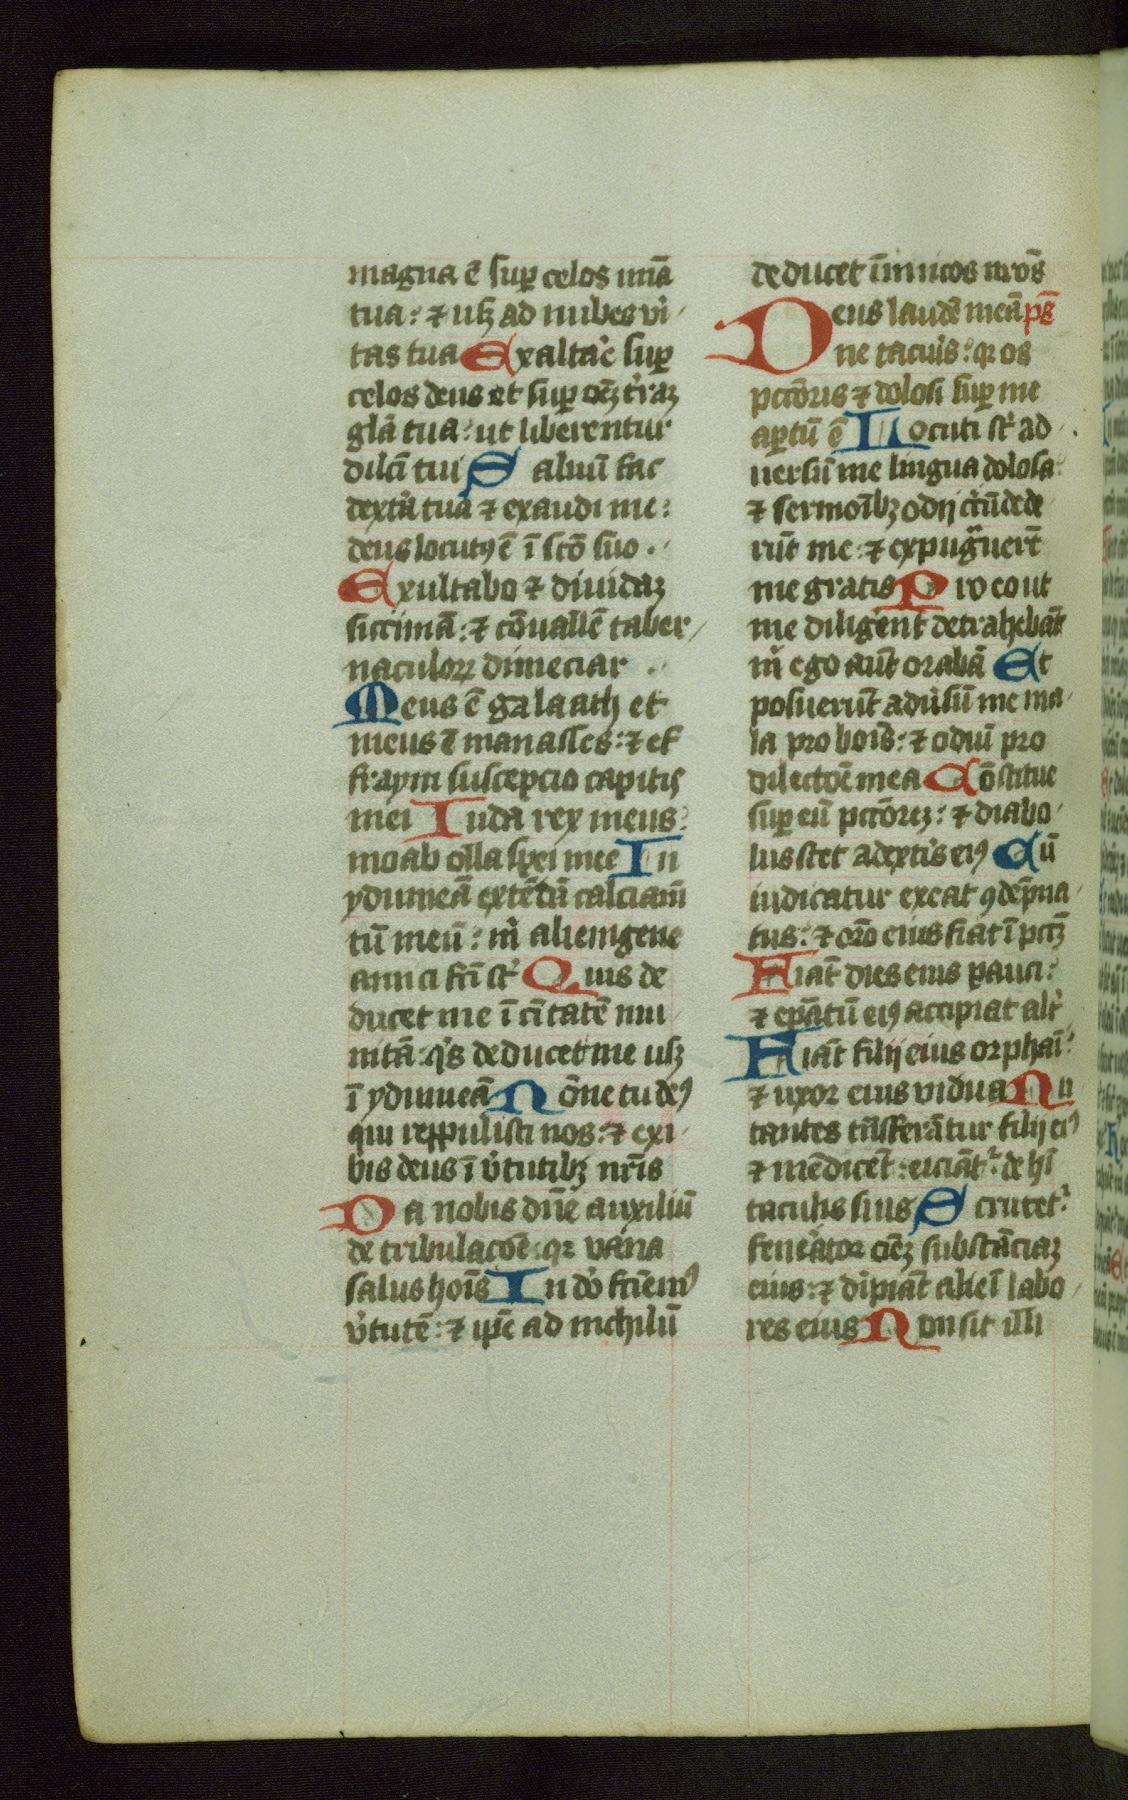 magna ē suꝑ celos mīa
tua: ⁊ usqꝫ ad nubes vͥ
tas tua Exaltar̄e suꝑ
celos deus et suꝑ oēꝫ tͥraꝫ
glā tua: ut liberentur
dilc̄i tui Saluū fac
dextͥā tuā ⁊ exaudi me:
deus locutꝰ ē ī scō suo .
Exultabo ⁊ diuidaꝫ
siccimā: ⁊ cōuallē taber
naculoꝝ dimeciar .
Meus ē galaath et
meus ē manasses: ⁊ ef
fraym suscepcio capitis
mei Iuda rex meus:
moab olla spei mee In
ydumeā extēdā calciam̄
tū meū: m̄ alienigene
amici fc̄i st̄ Quis de
ducet me ī cīitatē mu
nitā: qͥs deducet me usqꝫ
ī ydumeā Nōne tu deꝰ
qui reppulisti nos: ⁊ exi
bis deus ī vͥtutibꝫ nr̄is
Da nobis dn̄e auxiliū
de tribulacōe: qꝛ vana
salus hoīs In dō faciemꝰ
vͥtutē: ⁊ ip̄e ad nichilū
deducet īimicos nr̄os
Deus laudē meā ps̄
ne tacuͥis: qꝛ os
pctōris ⁊ dolosi suꝑ me
aꝑtū ē Locuti st̄ ad
uersū me lingua dolosa:
⁊ sermoībꝫ odij cͥcūdede
rūt me: ⁊ expugͣuert̄
me gratis Pro eo ut
me diligēnt detrahebāt
m̄ ego aut̄ orabā Et
posuerūt aduͥsū me ma
la pro boīs: ⁊ odiū pro
dilectōe mea Cōstitue
suꝑ eū pctōreꝫ: ⁊ diabo
lus stet a dextͥis eiꝰ Cū
iudicatur exeat ꝯdēpna
tus: ⁊ orō eius fiat ī pctꝫ
Fiāt dies eius pauci:
⁊ ep̄atū eiꝰ accipiat altͥ
Fiāt filij eius orphaī:
⁊ uxor eius vidua Nu
tantes tͣnsferātur filij eiꝰ
⁊ mēdicēt: eiciāt² de hī
taculis suis Scrutet²
feneͣtor oēꝫ substāciaꝫ
eius: ⁊ diͥpiāt alieī labo
res eius Non sit illi